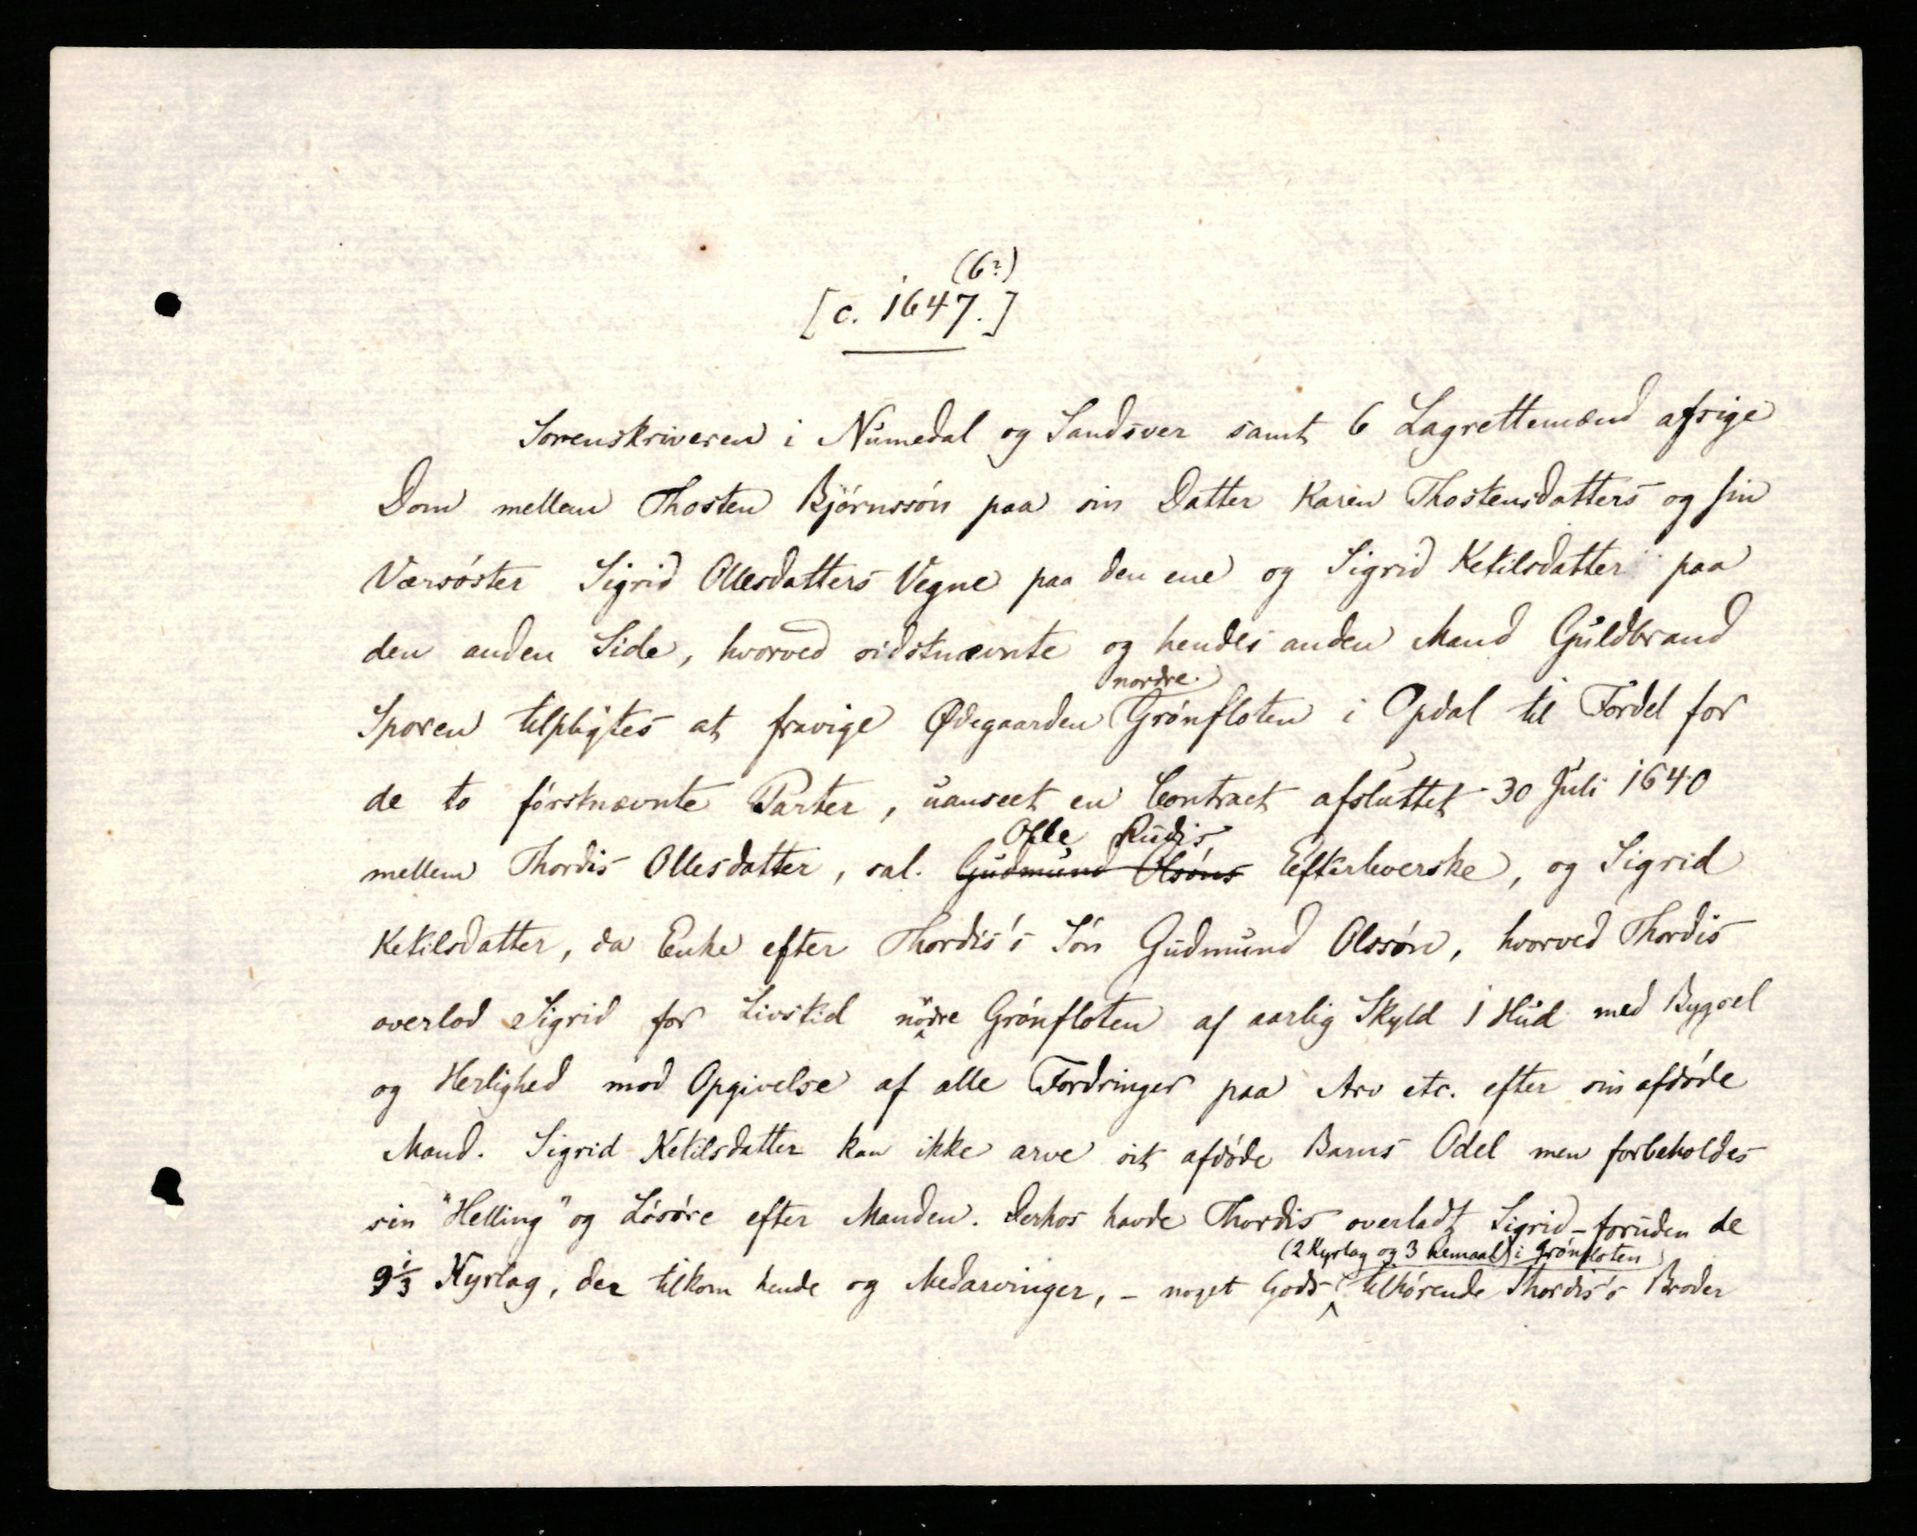 (6?)
[c. 1647.]
Sorenskriveren i Numedal og Sandsver samt 6 Lagrettemænd afsige
Dom mellem Thosten Bjørnssøn paa sin Datter Karen Thostensdatters og sin
Værsøster Sigrid Ollesdatters Vegne paa den ene og Sigrid Ketilsdatter paa
den anden Side, hvorved sidstnævnte og hendes anden Mand Guldbrand
nordre
Sporen tilpligtes at fravige Ødegaarden Grønfloten i Opdal til Fordel for
de to førstnævnte Parter, uanseet en Contract afsluttet 30 Juli 1640
Olle Rudis
mellem Thordis Ollesdatter, sal. Gudmund Olsøns Efterleverske, og Sigrid
Ketilsdatter, da Enke efter Thordis's Søn Gudmund Olssøn, hvorved Thordis
overlod Sigrid for Livstid nørdre Grønfloten af aarlig Skyld 1 Hud med Bygsel
og Herlighed mod Opgivelse af alle Fordringer paa Arv etc. efter sin afdøde
Mand. Sigrid Ketilsdatter kan ikke arve sit afdøde Barns Odel men forbeholdes
sin "Helling" og Løsøre efter Manden. Derhos havde Thordis overladt Sigrid - foruden de
(2 Kyrlag og 3 Remaal) i Grønfloten
9 1/3 Kyrlag, der tilkom hende og Medarvinger, - noget Gods tilhørende Thordis's Broder